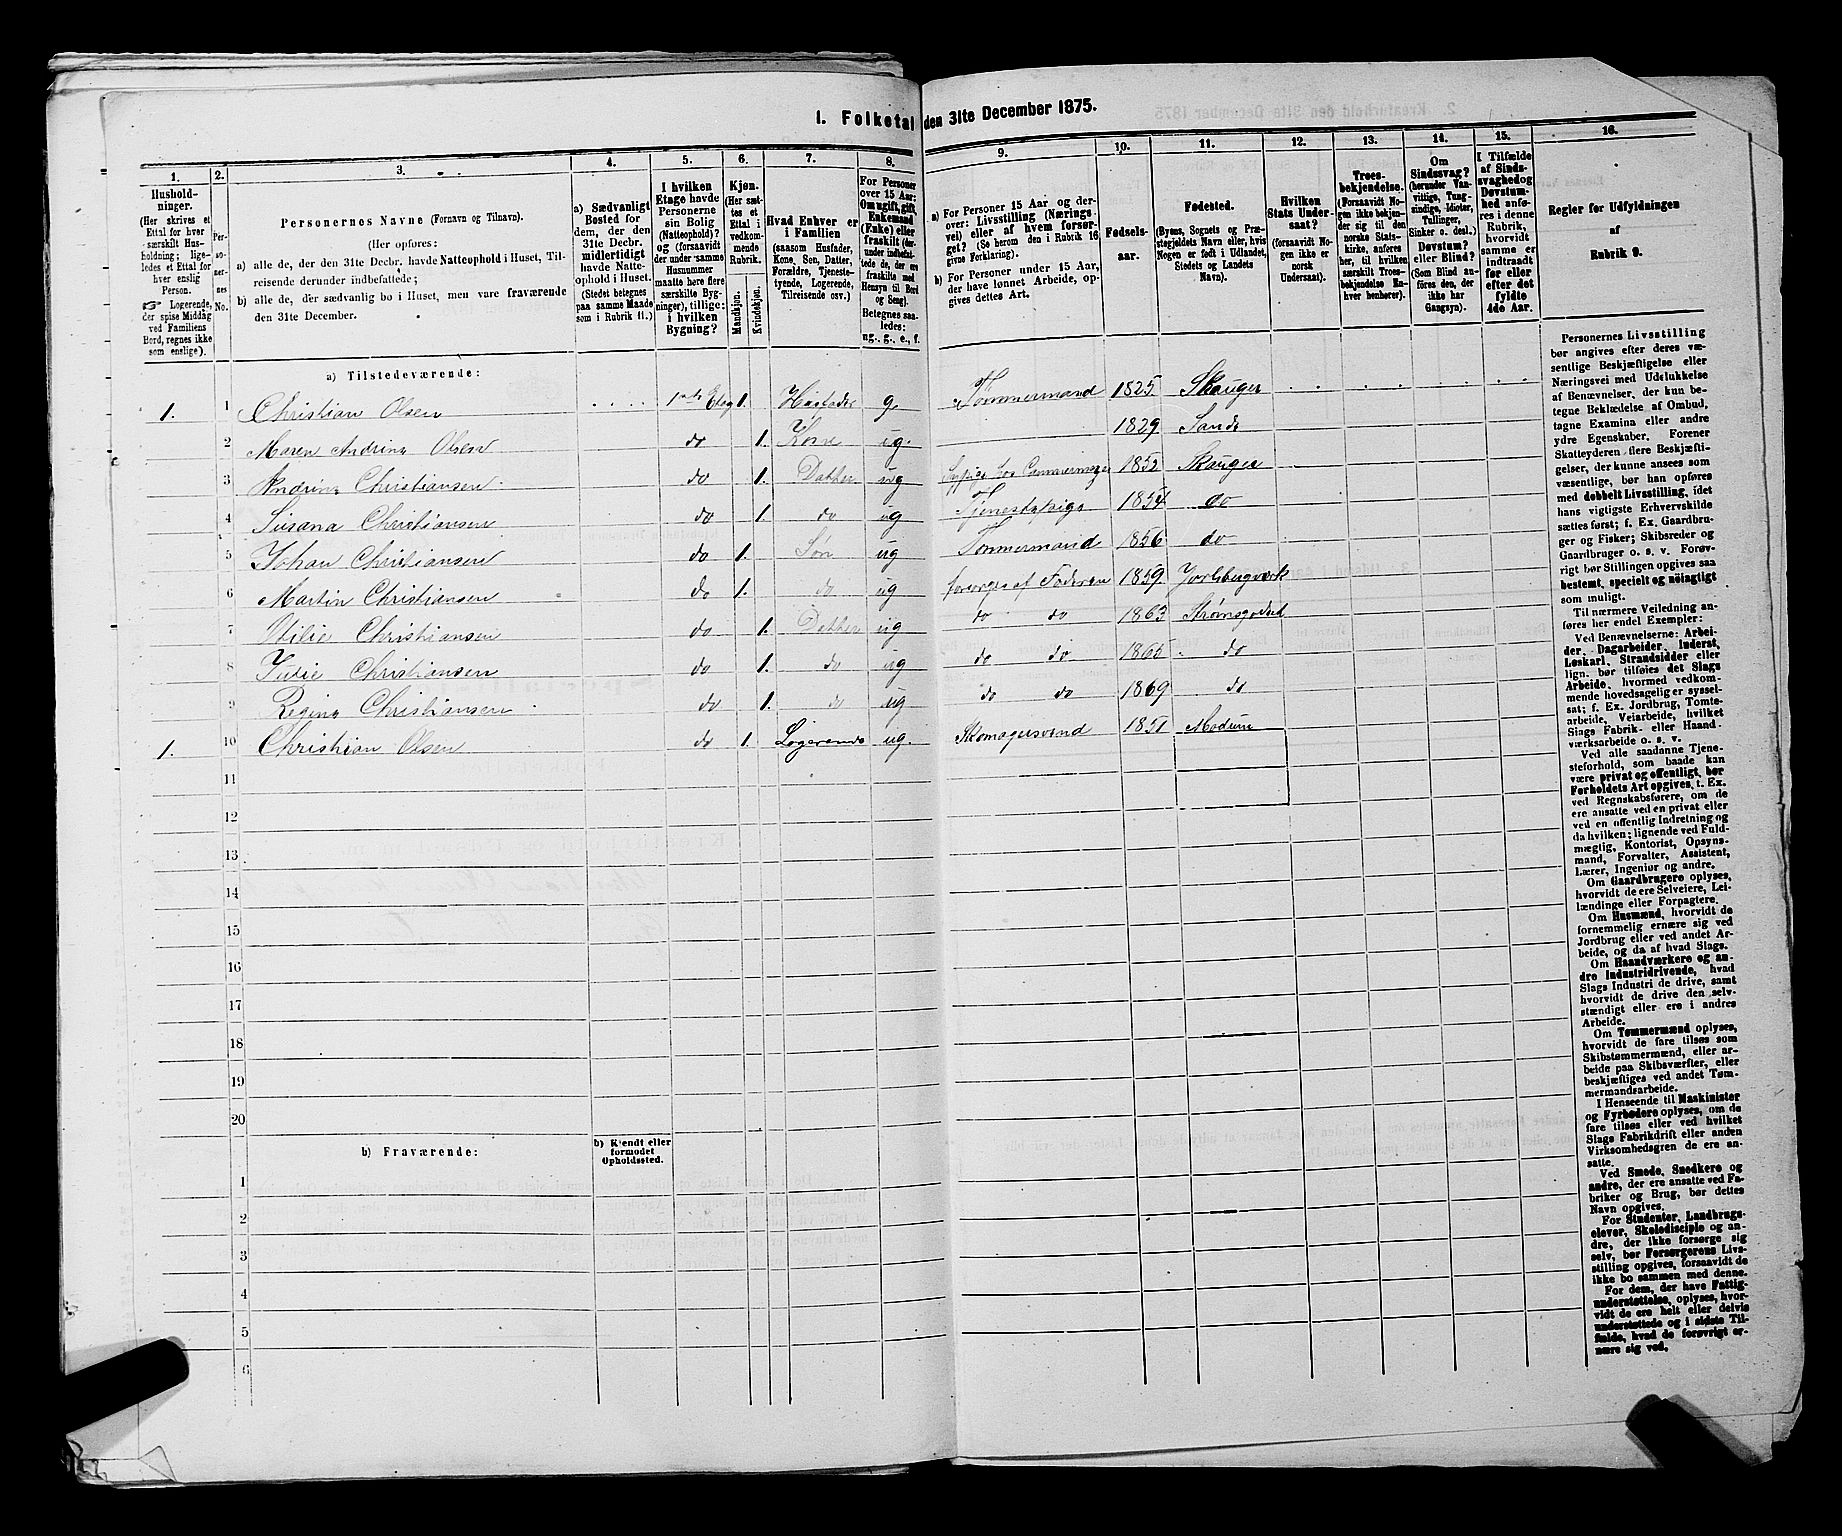 1. Folketal den 31te December 1875.
1. 2. 3. 4. 5. 6. 7. 8. 9. 10. 11. 12. 13. 14. 15. 16.
Hushold-
ninger.
(Her skrives et
Ettal for hver
særskilt Hus-
holdning; lige-
ledes et Ettal for
hver enslig
Person.
☞ Logerende,
der spise Middag
ved Familiens
Bord, regnes ikke
som enslige).
Personernes No.
Personernes Navne (Fornavn og Tilnavn).
(Her opføres:
a) alle de, der den 31te Decbr. havde Natteophold i Huset, Til-
reisende derunder indbefattede;
b) alle de, der sædvanlig bo i Huset, men vare fraværende
den 31te December.
a) Sædvanligt
Bosted for
dem, der den
31te Decbr.
midlertidigt
havde Natte-
ophold i Huset
(Stedet betegnes
paa samme Maade
som i Rubrik 11.)
I hvilken
Etage havde
Personerne
sin Bolig
(Natteophold)?
og (forsaavidt
der under samme
Husnummer
maatte høre flere
særskilte Byg-
ninger), tillige:
i hvilken
Bygning?
Kjøn.
(Her sæt-
tes et
Ettal i
vedkom-
mende
Rubrik.
Mandkjøn.
Kvindekjøn.
Hvad Enhver er
i Familien
(saasom Husfader,
Kone, Søn, Datter,
Forældre, Tjeneste-
tyende, Logerende,
Tilreisende osv.)
For Personer
over 15 Aar:
Om ugift, gift,
Enkemand
(Enke) eller
fraskilt
Hensyn til Bord
og Seng).
Betegnes saa-
ledes:
ug., g., e., f.
a) For Personer 15 Aar og der-
over: Livsstilling (Nærings-
vei) eller af hvem forsør-
get? (Se herom den i Rubrik 16
givne Forklaring).
b) For Personer under 15 Aar,
der have lønnet Arbeide, op-
gives dettes Art.
Fødsels-
aar.
Fødested.
(Byens, Sognets og Præ-
stegjeldets Navn eller, hvis
Nogen er født i Udlandet,
Stedets og Landets
Navn).
Hvilken
Stats Under-
saat?
(forsaavidt No-
gen ikke er
norsk
Undersaat).
Troes-
bekjendelse.
(Forsaavidt No-
gen ikke bekjen-
der sig til den
norske Stats-
kirke, anføres
her, til hvilken
særskilt Troes-
bekjendelse En-
hver henhører).
Om
Sindssvag?
(herunder Van-
vittige, Tung-
sindige, Idioter,
Tullinger,
Sinker o. desl.)
Døvstum?
eller Blind?
(Som Blind an-
føres den, der
ikke har
Gangsyn).
I Tilfælde
af Sinds-
svaghed og
Døvstum-
hed anfø-
res i denne
Rubrik,
hvorvidt
samme er
indtraadt
før eller
efter det
fyldte
4de Aar.
Regler for Udfyldningen
af
Rubrik 9.
a) Tilstedeværende:
1. 1 Christian Olsen 1ste Etag 1. Husfader g. Tømmermand 1825. Skauger
2 Maren Andrina Olsen do 1. Kone ug. 1829 Sande
3 Andrina Christiansen do 1. Datter ug 1852 Skauger
4 Susana Christiansen do 1. do ug Tjenestepige 1854 do
5 Johan Christiansen do 1. Søn ug Tømmermand 1856 do
6 Martin Christiansen do 1. do ug forsørges af Faderen 1859. Jarlsbergværk
7 Otilie Christiansen do 1. Datter ug do do 1863 Strømsgodset
8 Julie Christiansen do 1. do ug do do 1865 do
9 Regina Christiansen do 1. do ug do do 1869 do
1. 10 Christian Olsen do 1. Logerende ug. Skomagersvend 1851 Modum
11
12
13
14
15
16
17
18
19
20
b) Fraværende:
b) Kjendt eller
formodet
Opholdssted.
1
2
3
4
5
6
Personernes Livsstilling
bør angives efter deres væ-
sentlige Beskjæftigelse eller
Næringsvei med Udelukkelse
af Benævnelser, der kun be-
tegne Beklædelse af Ombud,
tagne Examina eller andre
ydre Egenskaber. Forener
Skatteyderen flere Beskjæfti-
gelser, der kunne ansees som
væsentlige, bør han opføres
med dobbelt Livsstilling, idet
hans vigtigste Erhvervskilde
sættes først; f. Ex. Gaardbru-
ger og Fisker; Skibsreder og
Gaardbruger o. s. v. Forøv-
rigt bør Stillingen opgives saa
bestemt, specielt og nøiagtigt
som muligt.
Til nærmere Veiledning an-
føres her endel Exempler:
Ved Benævnelserne: Arbei-
der, Dagarbeider, Inderst,
Løskarl, Strandsidder eller
lign. bør tilføies det Slags
Arbeide, hvormed vedkom-
mende hovedsagelig er syssel-
sat; f. Ex. Jordbrug, Tomte-
arbeide, Veiarbeide, hvilket
Slags Fabrik- eller Haand-
værksarbeide o. s. v.
Ved alle saadanne Tjene-
steforhold, som baade kan
være privat og offentligt, bør
Forholdets Art opgives, t. Ex.
ved Regnskabsførere, om de
ere ansatte ved en privat eller
ved en offentlig Indretning og
da hvilken; lignende ved Fuld-
mægtig, Kontorist, Opsyns-
mand, Forvalter, Assistent,
Lærer, Ingeniør og andre.
Om Gaardbrugere oplyses,
hvorvidt de ere Selveiere, Lei-
lændinge eller Forpagtere.
Om Husmænd, hvorvidt de
fornemmelig ernære sig ved
Jordbrug eller ved andet Ar-
beide, og da af hvad Slags.
Om Haandværkere og an-
dre Industridrivende, hvad
Slags Industri de drive, samt
hvorvidt de drive den selv-
stændigt eller ere i andres
Arbeide.
Om Tømmermænd oplyses,
hvorvidt de fare tilsøs som
Skibstømmermænd, eller ar-
beide paa Skibsværfter, eller
beskjæftiges ved andet Tøm-
mermandsarbeide.
I Henseende til Maskinister
og Fyrbødere oplyses, om de
fare tilsøs eller ved hvilket
Slags Fabrikdrift eller anden
Virksomhedsgren de ere an-
satte.
Ved Smede, Snedkere og
andre, der ere ansatte ved Fa-
briker og Brug, bør dettes
Navn opgives.
For Studenter, Landbrugs-
elever, Skoledisciple og an-
dre, der ikke forsørge sig
selv, bør Forsørgerens Livs-
stilling opgives, forsaavidt de
ikke bo sammen med denne.
For dem, der have Fattig-
understøttelse, oplyses, hvor-
vidt de ere helt eller delvis
understøttede og i sidste Til-
fælde, hvad de forøvrigt er-
nære sig ved.